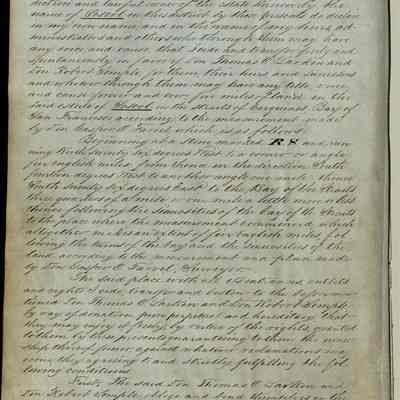 diction and lawful owner of the estate known by the
name of Soscol in this district by these presents do declare
in my own name, and in the name of my heirs, ad-
ministrators and others who through them may have
any voice and cause, that I cede and transfer freely and
spontaneously in favor of Don Thomas O. Larkin and
Don Robert Semple, for them, their heirs and successors
and whoever through them may have any title, voice
and cause forever and ever five miles of land in the
said estate of Soscol in the straits of Carquinez Bay of
San Francisco according to the measurement made
by Don Gasper O Farrel which is as follows
Beginning at a stone marked R S and run-
ning North Seventy Six degrees West to a corner or angle
five english miles, from thence in the direction South
fourteen degrees West to another angle one mile, thence
South Seventy Six degrees East to the Bay of the Straits
three quarters of a mile or one mile a little more or less
thence following the sinuosities of the bay of the Straits
to the place where the measurement commenced, which
altogether makes an extent of five English miles, fol-
lowing the turns of the bay and the sinuosities of the
land according to the measurement and plan made
by Don Gasper O Farrel, Surveyor
The said place with all its entrances, outlets
and rights I cede, transfer and desist to the before men-
tioned Don Thomas O. Larkin and Don Robert Semple,
by way of donation pure perpetual and hereditary that
they may enjoy it freely, by virtue of the rights granted
to them by these presents guaranteeing to them the owner-
ship thereof from against whatever reclamations may
come, they agreeing to and strictly fulfilling the fol-
lowing conditions
First. The said Don Thomas O. Larkin and
Don Robert Semple oblige and bind themselves in the